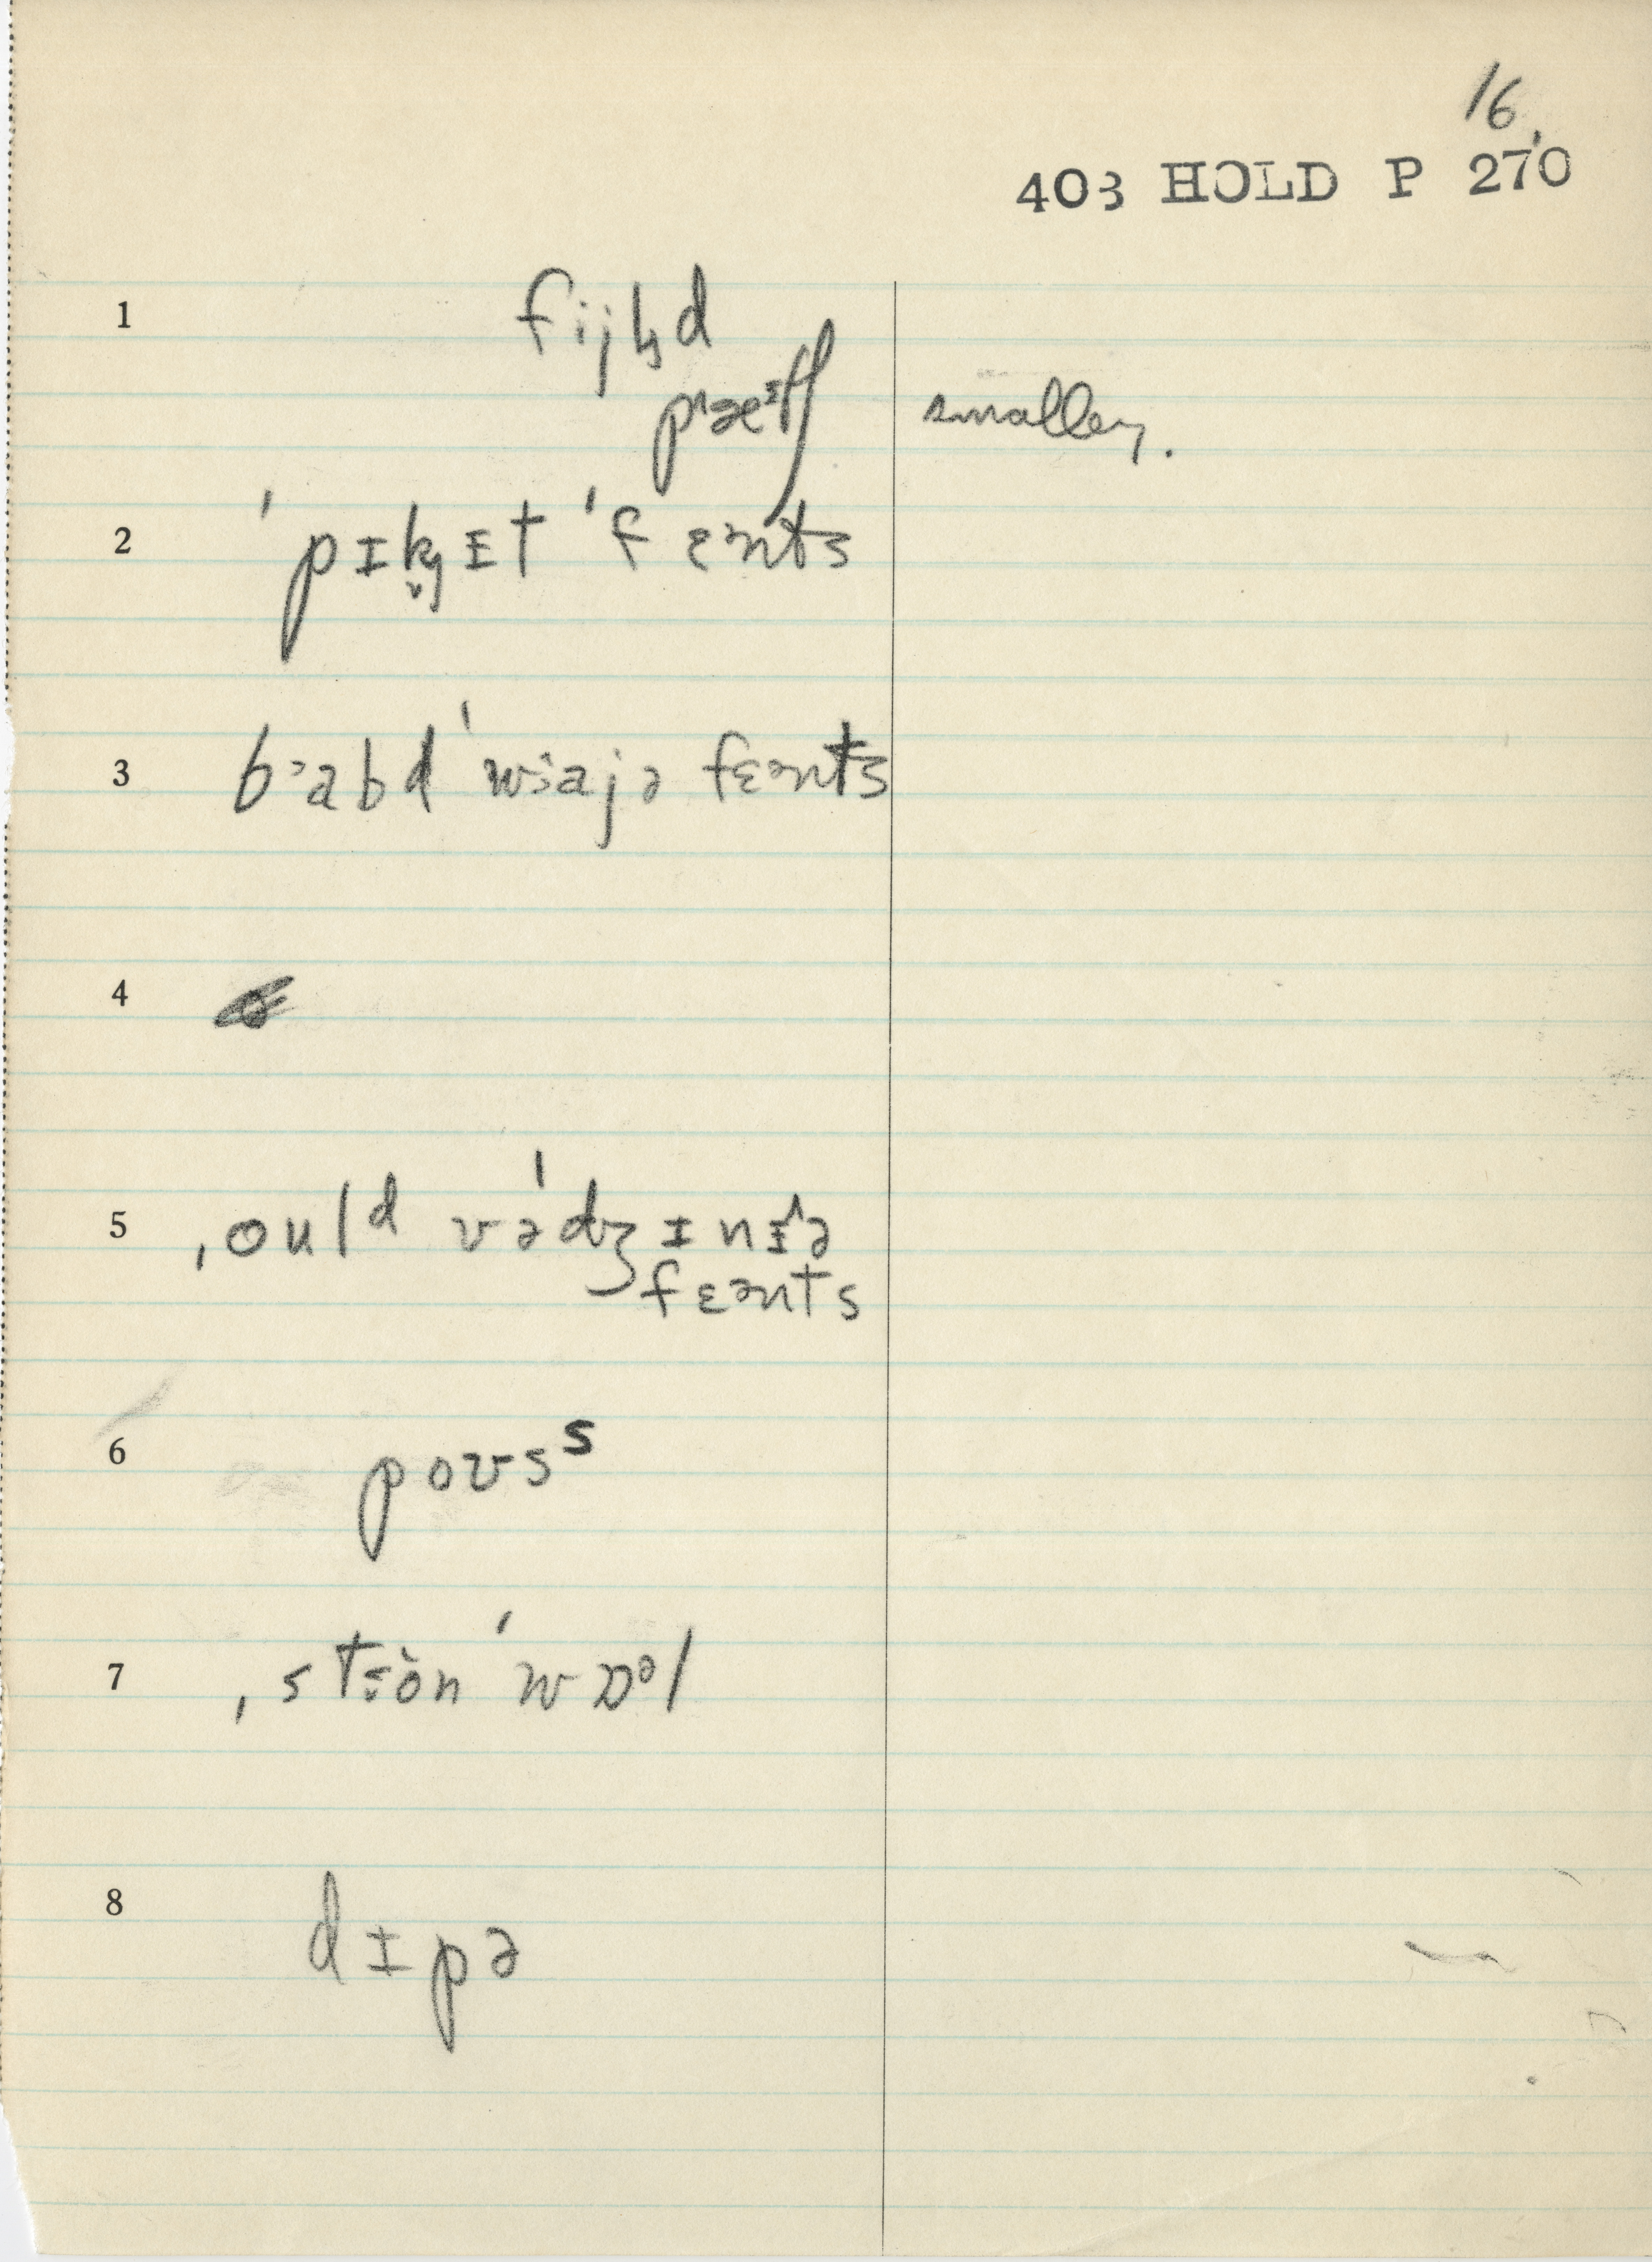 16.
403 HOLD P 270
1 fijɫd
pˈæᶦtʃ smaller.
2 ˈpɪkɪt ˈfɛənts
3 bɜabd ˈwɜajə fɛənts
4
5 ˌould vəˈdʒɪnɪ^ə
fɛənts
6 poʊsˢ
7 ˌstɜòn ˈwɒᵊl
8 dɪpə